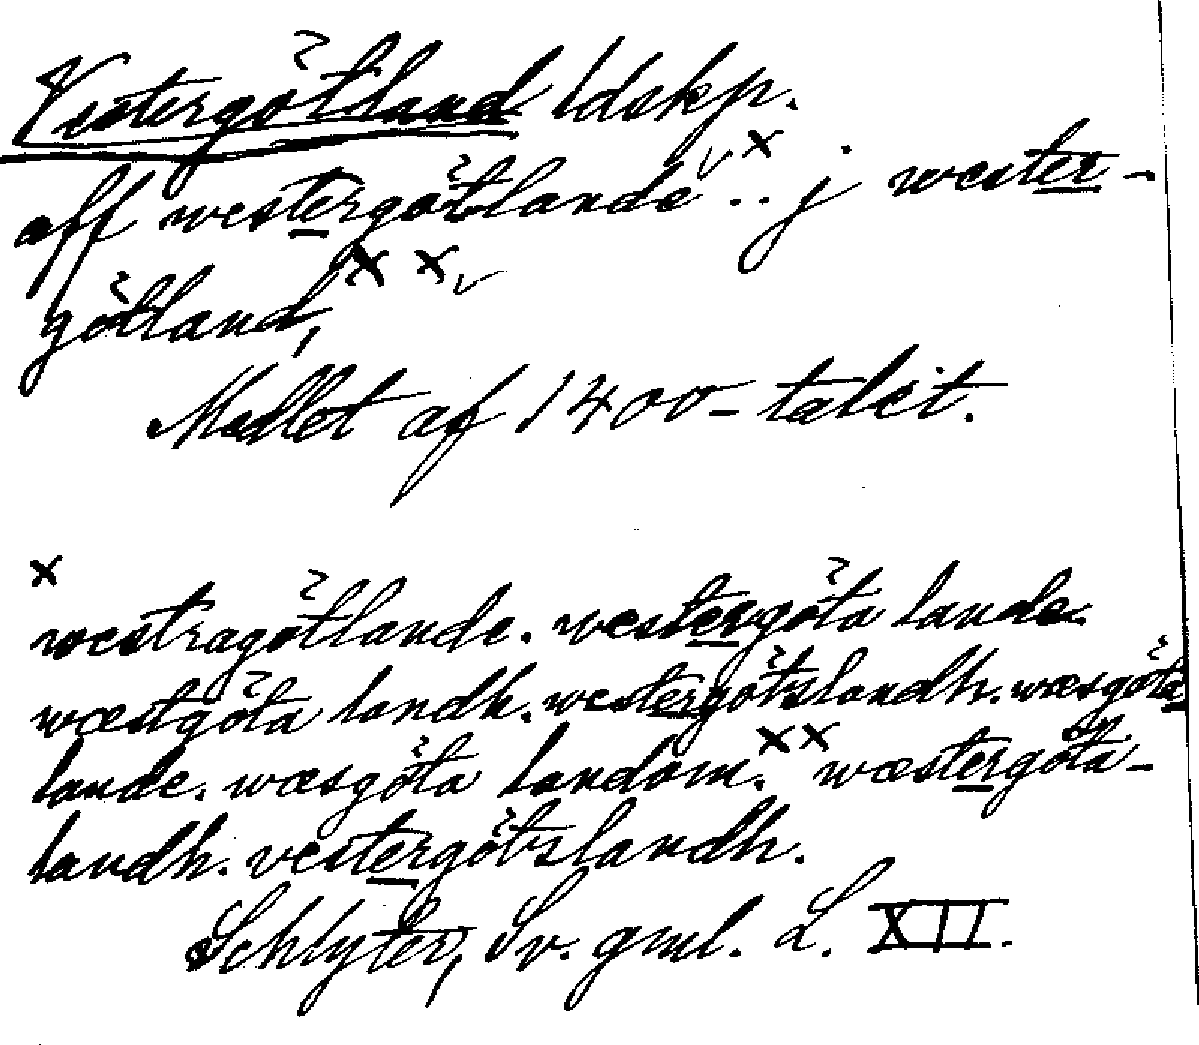 Vestergötland ldskp.
aff westergötlande x .. j wester-
götland, x x
Mellet af 1400-talet.
x
westragötlande. westergöta lande.
wæstgöta landh. westergötslandh. wæsgöta
lande. wæsgöta landom. xx wæstergöta-
landh. vestergötslandh.
Schlyter, Sv. gml. L. XII.